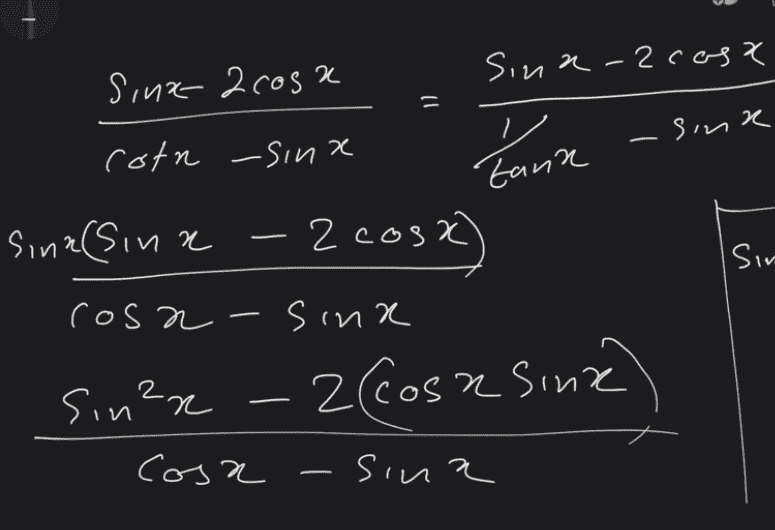 (sin x - 2 cos x)/(cot x - sin x) = (sin x - 2 cos x)/(1/tan x - sin x)
sin x (sin x - 2 cos x)/(cos x - sin x)
(sin²x - 2(cos x sin x))/(cos x - sin x)